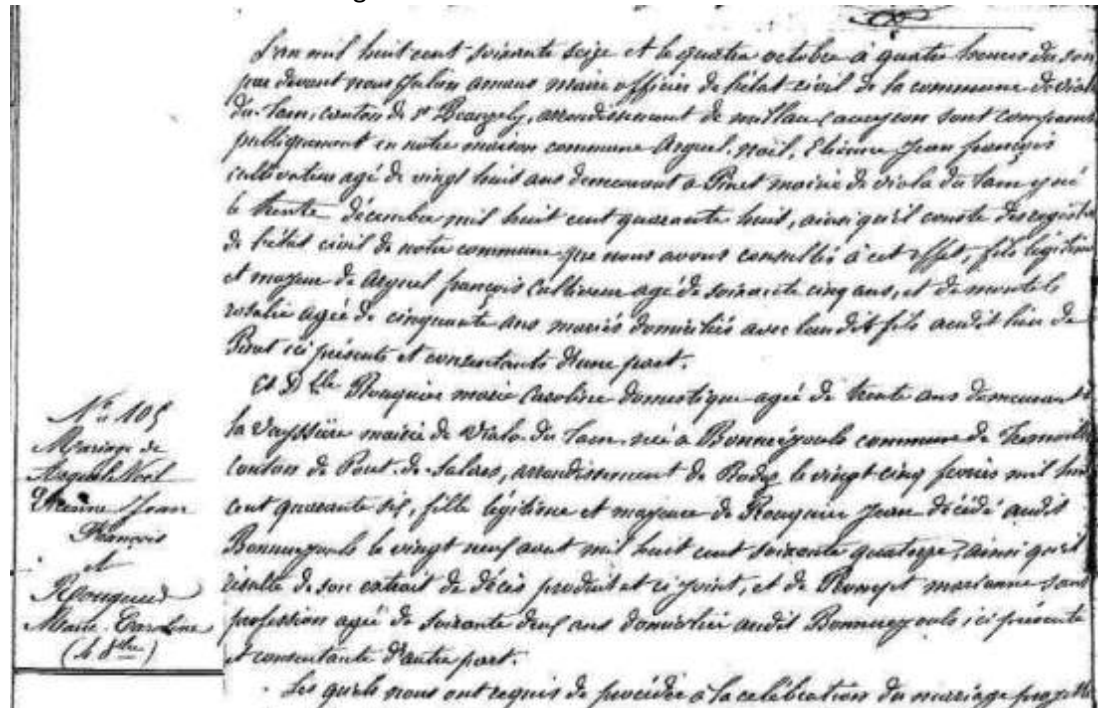 L'an mil huit cent soixante seize et le quatre octobre à quatre heures du soir
par devant nous Julien amans maire officier de l'état civil de la commune de viala
du Tarn, canton de St Beauzely, arrondissement de millau (aveyron) sont comparus
publiquement en notre maison commune Arguel, noël, Etienne Jean françois
cultivateur agé de vingt huit ans demeurant a Pinet mairie de viala du Tarn y né
le trente décembre mil huit cent quarante huit, ainsi qu'il conste des registres
de l'état civil de notre commune que nous avons consultés à cet effet, fils légitime
et majeur de Arguel françois Cultivateur agé de soixante cinq ans, et de
rosalie agée de cinquante ans mariés domiciliés avec leur dit fils audit lieu de
Pinet ici présents et consentants d'une part.
Et Dlle Rouquier marie Caroline domestique agée de trente ans demeurant à
la Vayssière mairie de Viala du Tarn née à commune de
Canton de Pont-de-Salars, arrondissement de Rodez le vingt cinq mil huit
cent quarante six, fille légitime et majeure de Rouquier Jean décédé audit
le vingt neuf aout mil huit cent soixante quatorze, ainsi qu'il
résulte de son extrait de décès produit et ci joint, et de marianne sans
profession agée de soixante deux ans domiciliée audit ici présente
et consentante d'autre part.
Les quels nous ont requis de procéder à la célébration du mariage projetté
Nº 105
Mariage de
Arguel Noël
Etienne Jean
François
et
Rouquier
Marie-Caroline
(4 8bre)